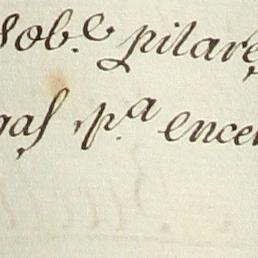 sob.e pilares
gas, p.a encer